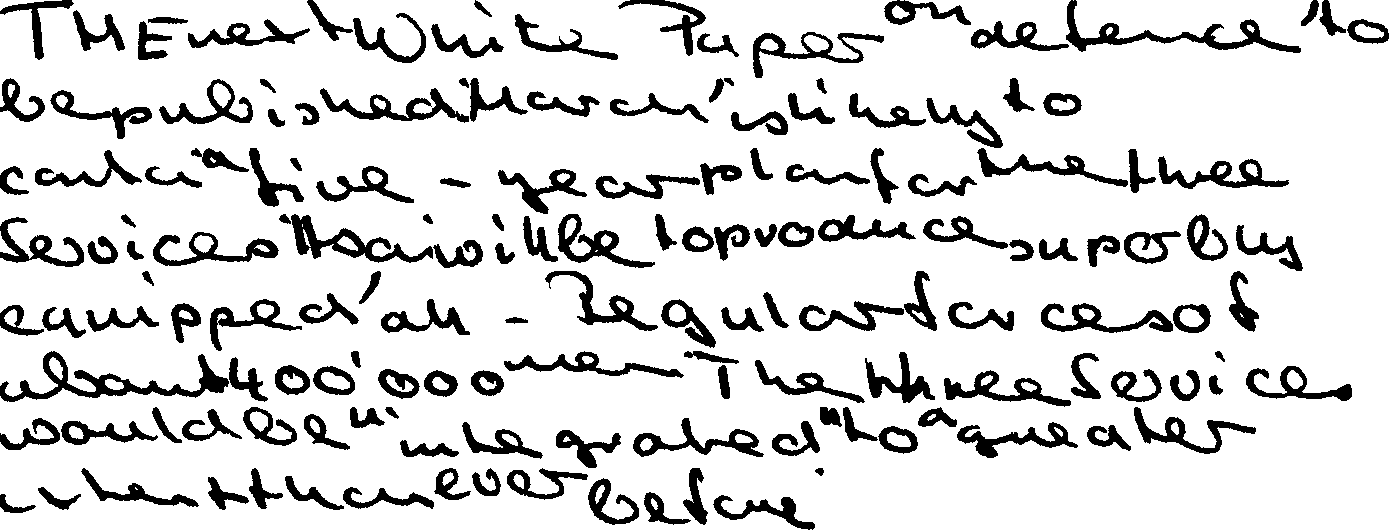 THE next White Paper on defence to
be published March is likely to
contain a five - year plan for the three
Services It's aim will be to produce superbly
equipped all - Regular forces of
about 400'000 men The three Services
would be "integrated" to a greater
extent than ever before